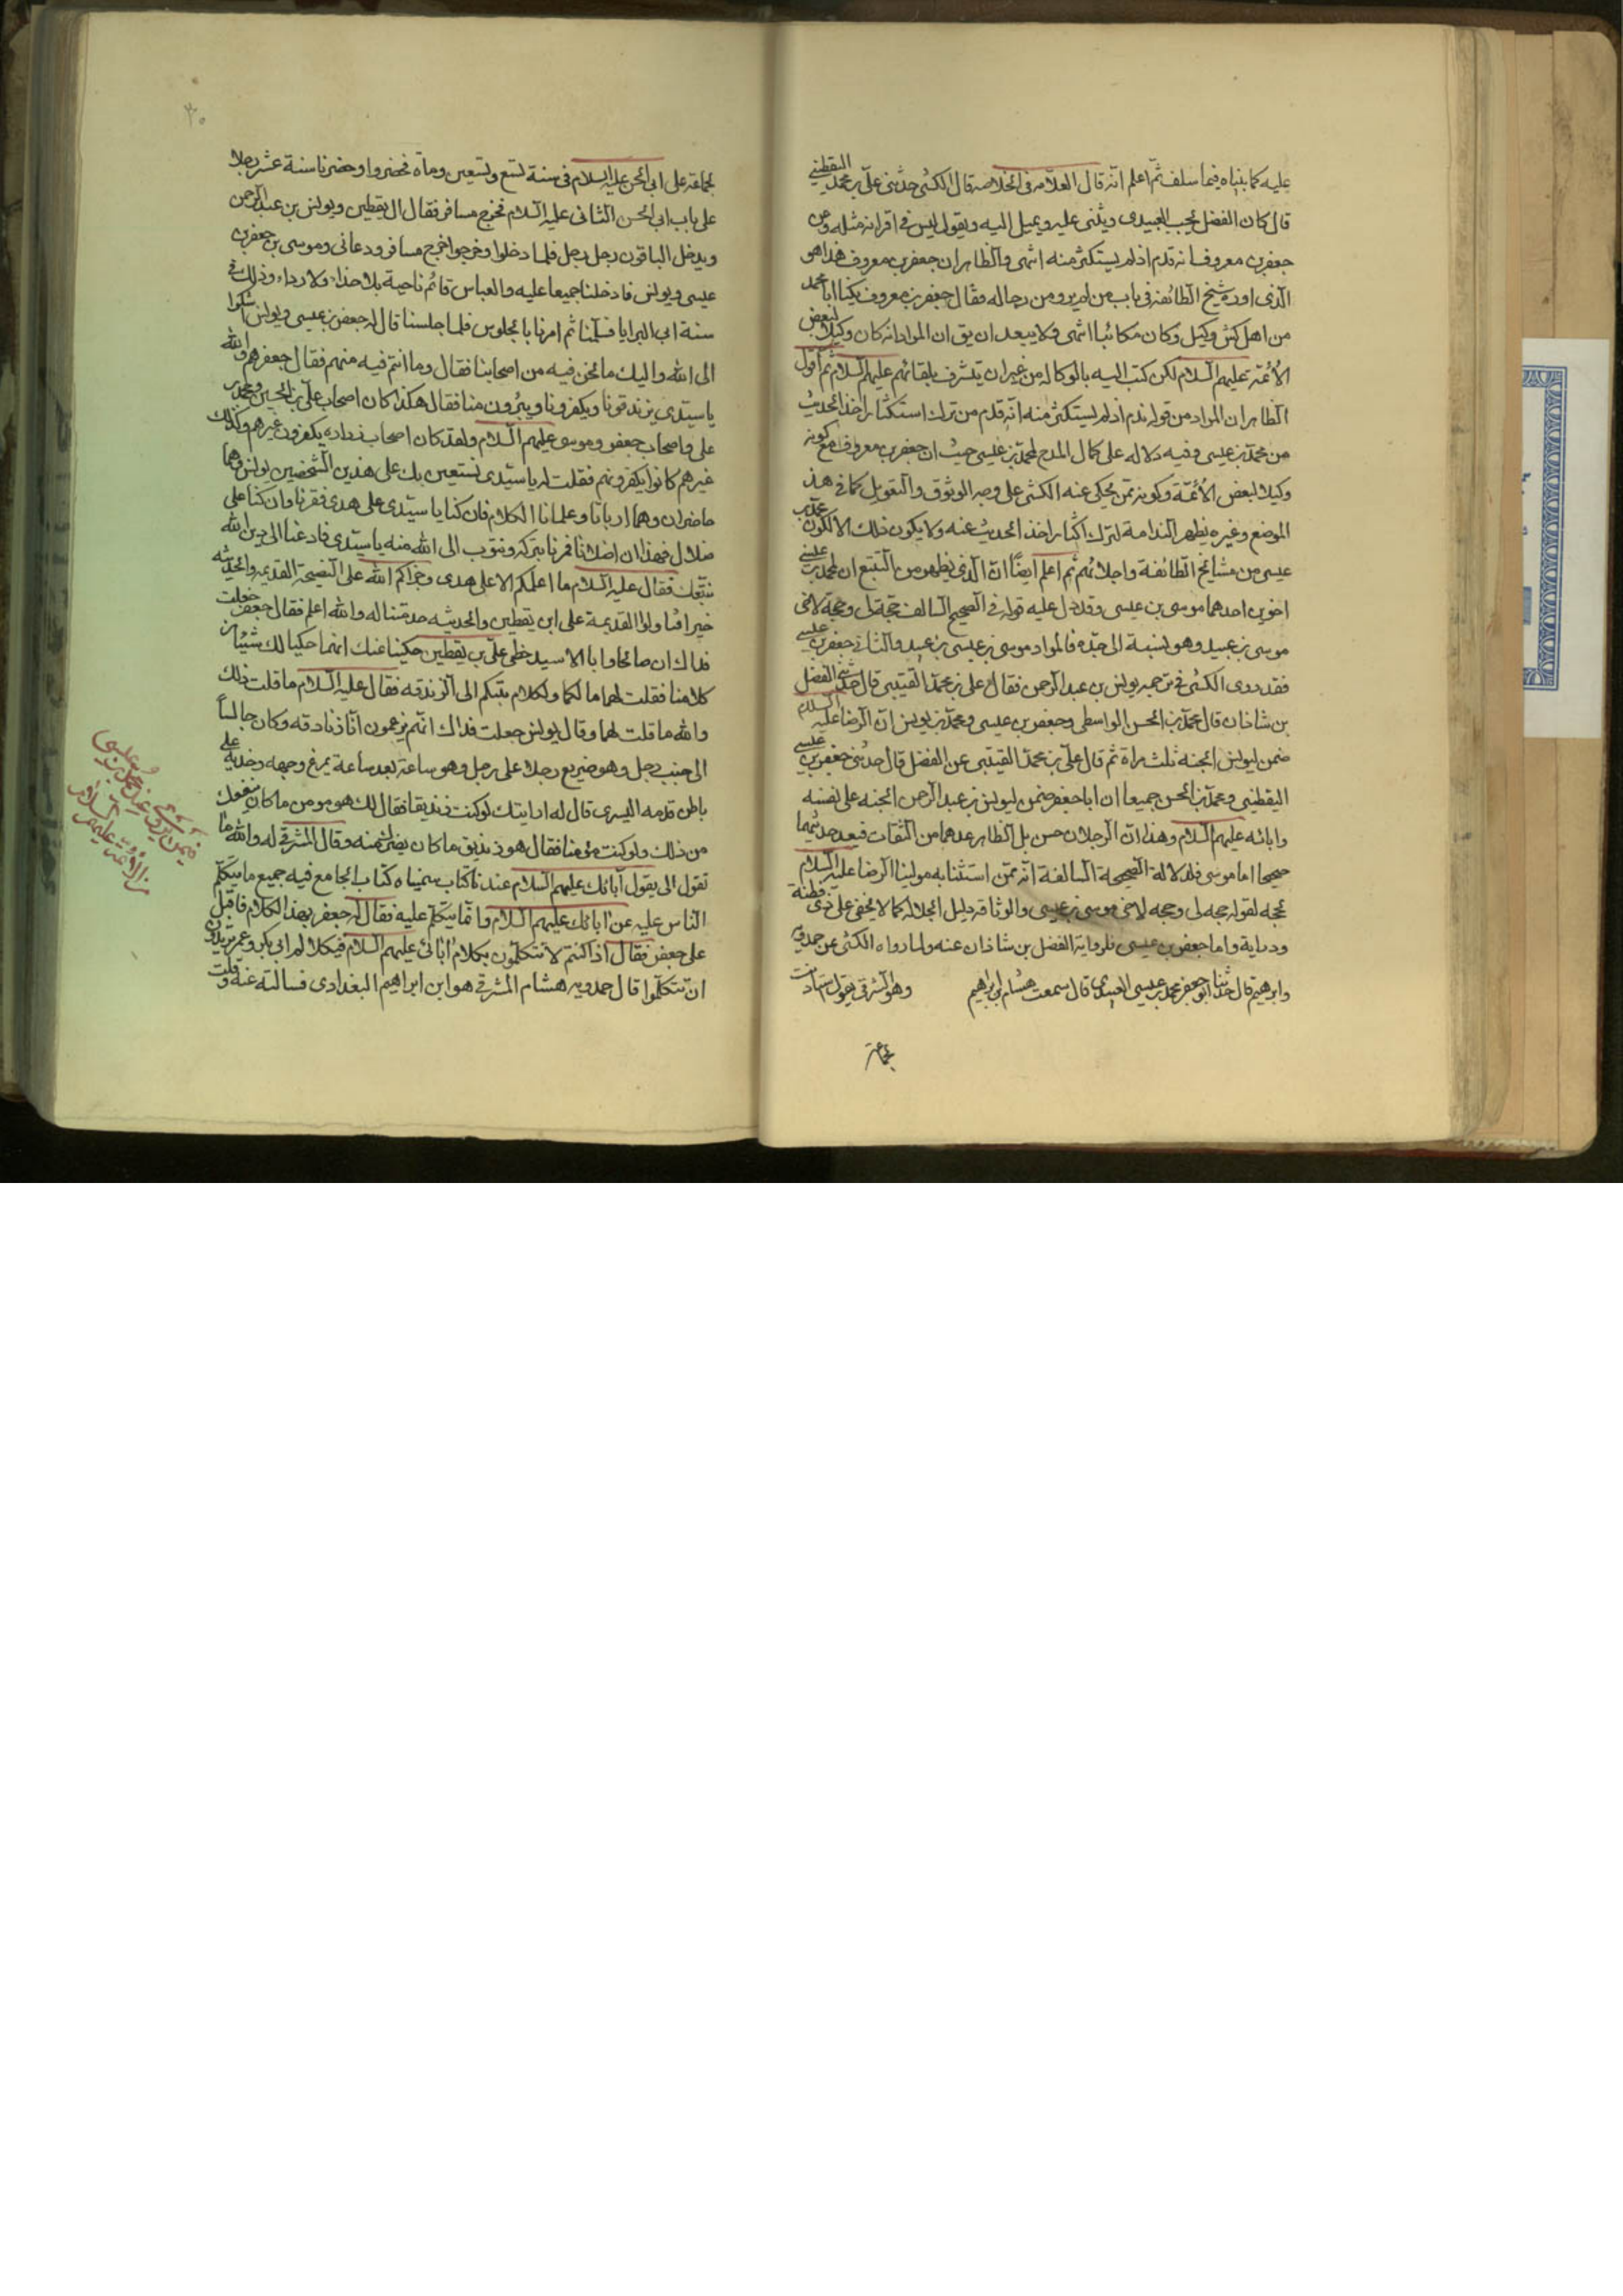 عليه كما بيناه فيما سلف ثم اعلم انه قال العلامه فى الخلاصه قال الكشى حدثنى على بن محمد القتيبى
قال كان الفضل يحب العبيدى ويثنى عليه ويميل اليه ويقول ليس فى اقرانه مثله وعن
جعفر بن معروف انه ندم اذ لم يستكثر منه انتهى والظاهر ان جعفر بن معروف هذا هو
الذى اورده شيخ الطائفه فى باب من لم يرو من رجاله فقال جعفر بن معروف يكنا ابا محمد
من اهل كش وكيل وكان مكاتبا انتهى ولا يبعد ان يق ان المراد انه كان وكيلا لبعض
الائمه عليهم السلام لكن كتب اليه بالوكاله من غير ان يتشرف بلقائهم عليهم السلام ثم اقول
الظاهر ان المراد من قوله ندم اذ لم يستكثر منه انه ندم من ترك استكثار اخذ الحديث
من محمد بن عيسى وفيه دلاله على كمال المدح لمحمد بن عيسى حيث ان جعفر بن معروف مع كونه
وكيلا لبعض الائمة وكونه ممن يحكى عنه الكشى على وجه الوثوق والتعويل كما فى هذا
الموضع وغيره يظهر الندامة لترك اكثار اخذ الحديث عنه ولا يكون ذلك الا لكون محمد بن
عيسى من مشايخ الطائفة واجلائهم ثم اعلم ايضا ان الذى يظهر من التتبع ان لمحمد بن عيسى
اخوين احدهما موسى بن عيسى وقد دل عليه قوله فى الصحيح السالف حجة لى وحجة لاخى
موسى بن عبيد وهو نسبة الى جده فالمراد موسى بن عيسى بن عبيد والثانى جعفر بن عيسى
فقد روى الكشى فى ترجمه يونس بن عبد الرحمن فقال على بن محمد القتيبى قال حدثنى الفضل
بن شاذان قال محمد بن الحسن الواسطى وجعفر بن عيسى ومحمد بن يونس ان الرضا عليه السلام
ضمن ليونس الجنه ثلث مراة ثم قال على بن محمد القتيبى عن الفضل قال حدثنى جعفر بن عيسى
اليقطينى ومحمد بن الحسن جميعا ان ابا جعفر ضمن ليونس بن عبد الرحمن الجنه على نفسه
وابائه عليهم السلام وهذا ان الرجلان حسن بل الظاهر عدهما من الثقات فيعد حديثهما
صحيحا اما موسى فلدلالة الصحيحة السالفة انه ممن استثنا به مولينا الرضا عليه السلام
بحجه لقوله حجه لى وحجه لاخى موسى بن عيسى والوثاقه دليل الجلاله كما لا يخفى على ذى فطنة
ودراية واما جعفر بن عيسى فلرواية الفضل بن شاذان عنه ولما رواه الكشى عن حمدويه
وابرهيم قال حدثنا ابو جعفر محمد بن عيسى العبيدى قال سمعت هشام بن ابراهيم وهو المشرقى يقول استاذنت
لجماعة
٣٠
لجماعة على ابى الحسن عليه السلام فى سنة تسع وتسعين ومأة فحضروا وحضرنا ستة عشر رجلا
على باب ابى الحسن الثانى عليه السلام فخرج مسافر فقال ال يقطين ويونس بن عبد الرحمن
ويدخل الباقون رجل رجل فلما دخلوا وخرجوا خرج مسافر ودعانى وموسى بن جعفر بن
عيسى ويونس فادخلنا جميعا عليه والعباس قائم ناحية بلا حذاء ولا رداء وذلك فى
سنة ابى السرايا فسلمنا ثم امرنا بالجلوس فلما جلسنا قال له جعفر بن عيسى ويونس اشكوا
الى الله واليك ما نحن فيه من اصحابنا فقال وما انتم فيه منهم فقال جعفر هم والله
يا سيدى يزندقونا ويكفرونا ويبرؤن منا فقال هكذا كان اصحاب على بن الحسين ومحمد بن
على واصحاب جعفر وموسى عليهم السلام ولقد كان اصحاب زراره يكفرون غيرهم وكذلك
غيرهم كانوا يكفرونهم فقلت له يا سيدى نستعين بك على هذين الشخصين يونس وهما
حاضران وهما ادبانا وعلمانا الكلام فان كنا يا سيدى على هدى فقرنا وان كنا على
ضلال فهذان اضلانا فمرنا بتركه ونتوب الى الله منه يا سيدى فادعنا الى دين الله
نتبعك فقال عليه السلام ما اعلمكم الا على هدى وجزاكم الله على النصيحة القديمه والحديثه
خيرا فتاولوا القديمة على ابن يقطين والحديثه خدمتنا له والله اعلم فقال جعفر جعلت
فداك ان صالحا وابا الاسيد خطى على بن يقطين حكينا عنك انهما حكيا لك شيئا من
كلامنا فقلت لهما ما لكما ولكلام يثنيكم الى الزندقه فقال عليه السلام ما قلت ذلك
والله ما قلت لهما وقال يونس جعلت فداك انهم يزعمون انا زنادقه وكان جالسا
الى جنب رجل وهو ضريع رجلا على رجل وهو ساعة بعد ساعة يمرغ وجهه وخديه على
باطن قدمه اليسرى قال له ارايتك لو كنت زنديقا فقال لك هو مومن ما كان ينفعك
من ذلك ولو كنت مؤمنا فقال هو زنديق ما كان يضرك منه وقال المشرقى له والله ما
تقول الى يقول آبائك عليهم السلام عندنا كتاب سميناه كتاب الجامع فيه جميع ما يتكلم
الناس عليه عن ابائك عليهم السلام وانما يتكلم عليه فقال له جعفر بهذا الكلام فاقبل
على جعفر فقال اذا كنتم لا تتكلمون بكلام ابائى عليهم السلام فبكلام ابى بكر وعمر تريدون
ان تتكلموا قال حمدويه هشام المشرقى هو ابن ابراهيم البغدادى فسالته عنه وقلت
فيمن يروى عن محمد بن عيسى
من الرواة عليهم السلام